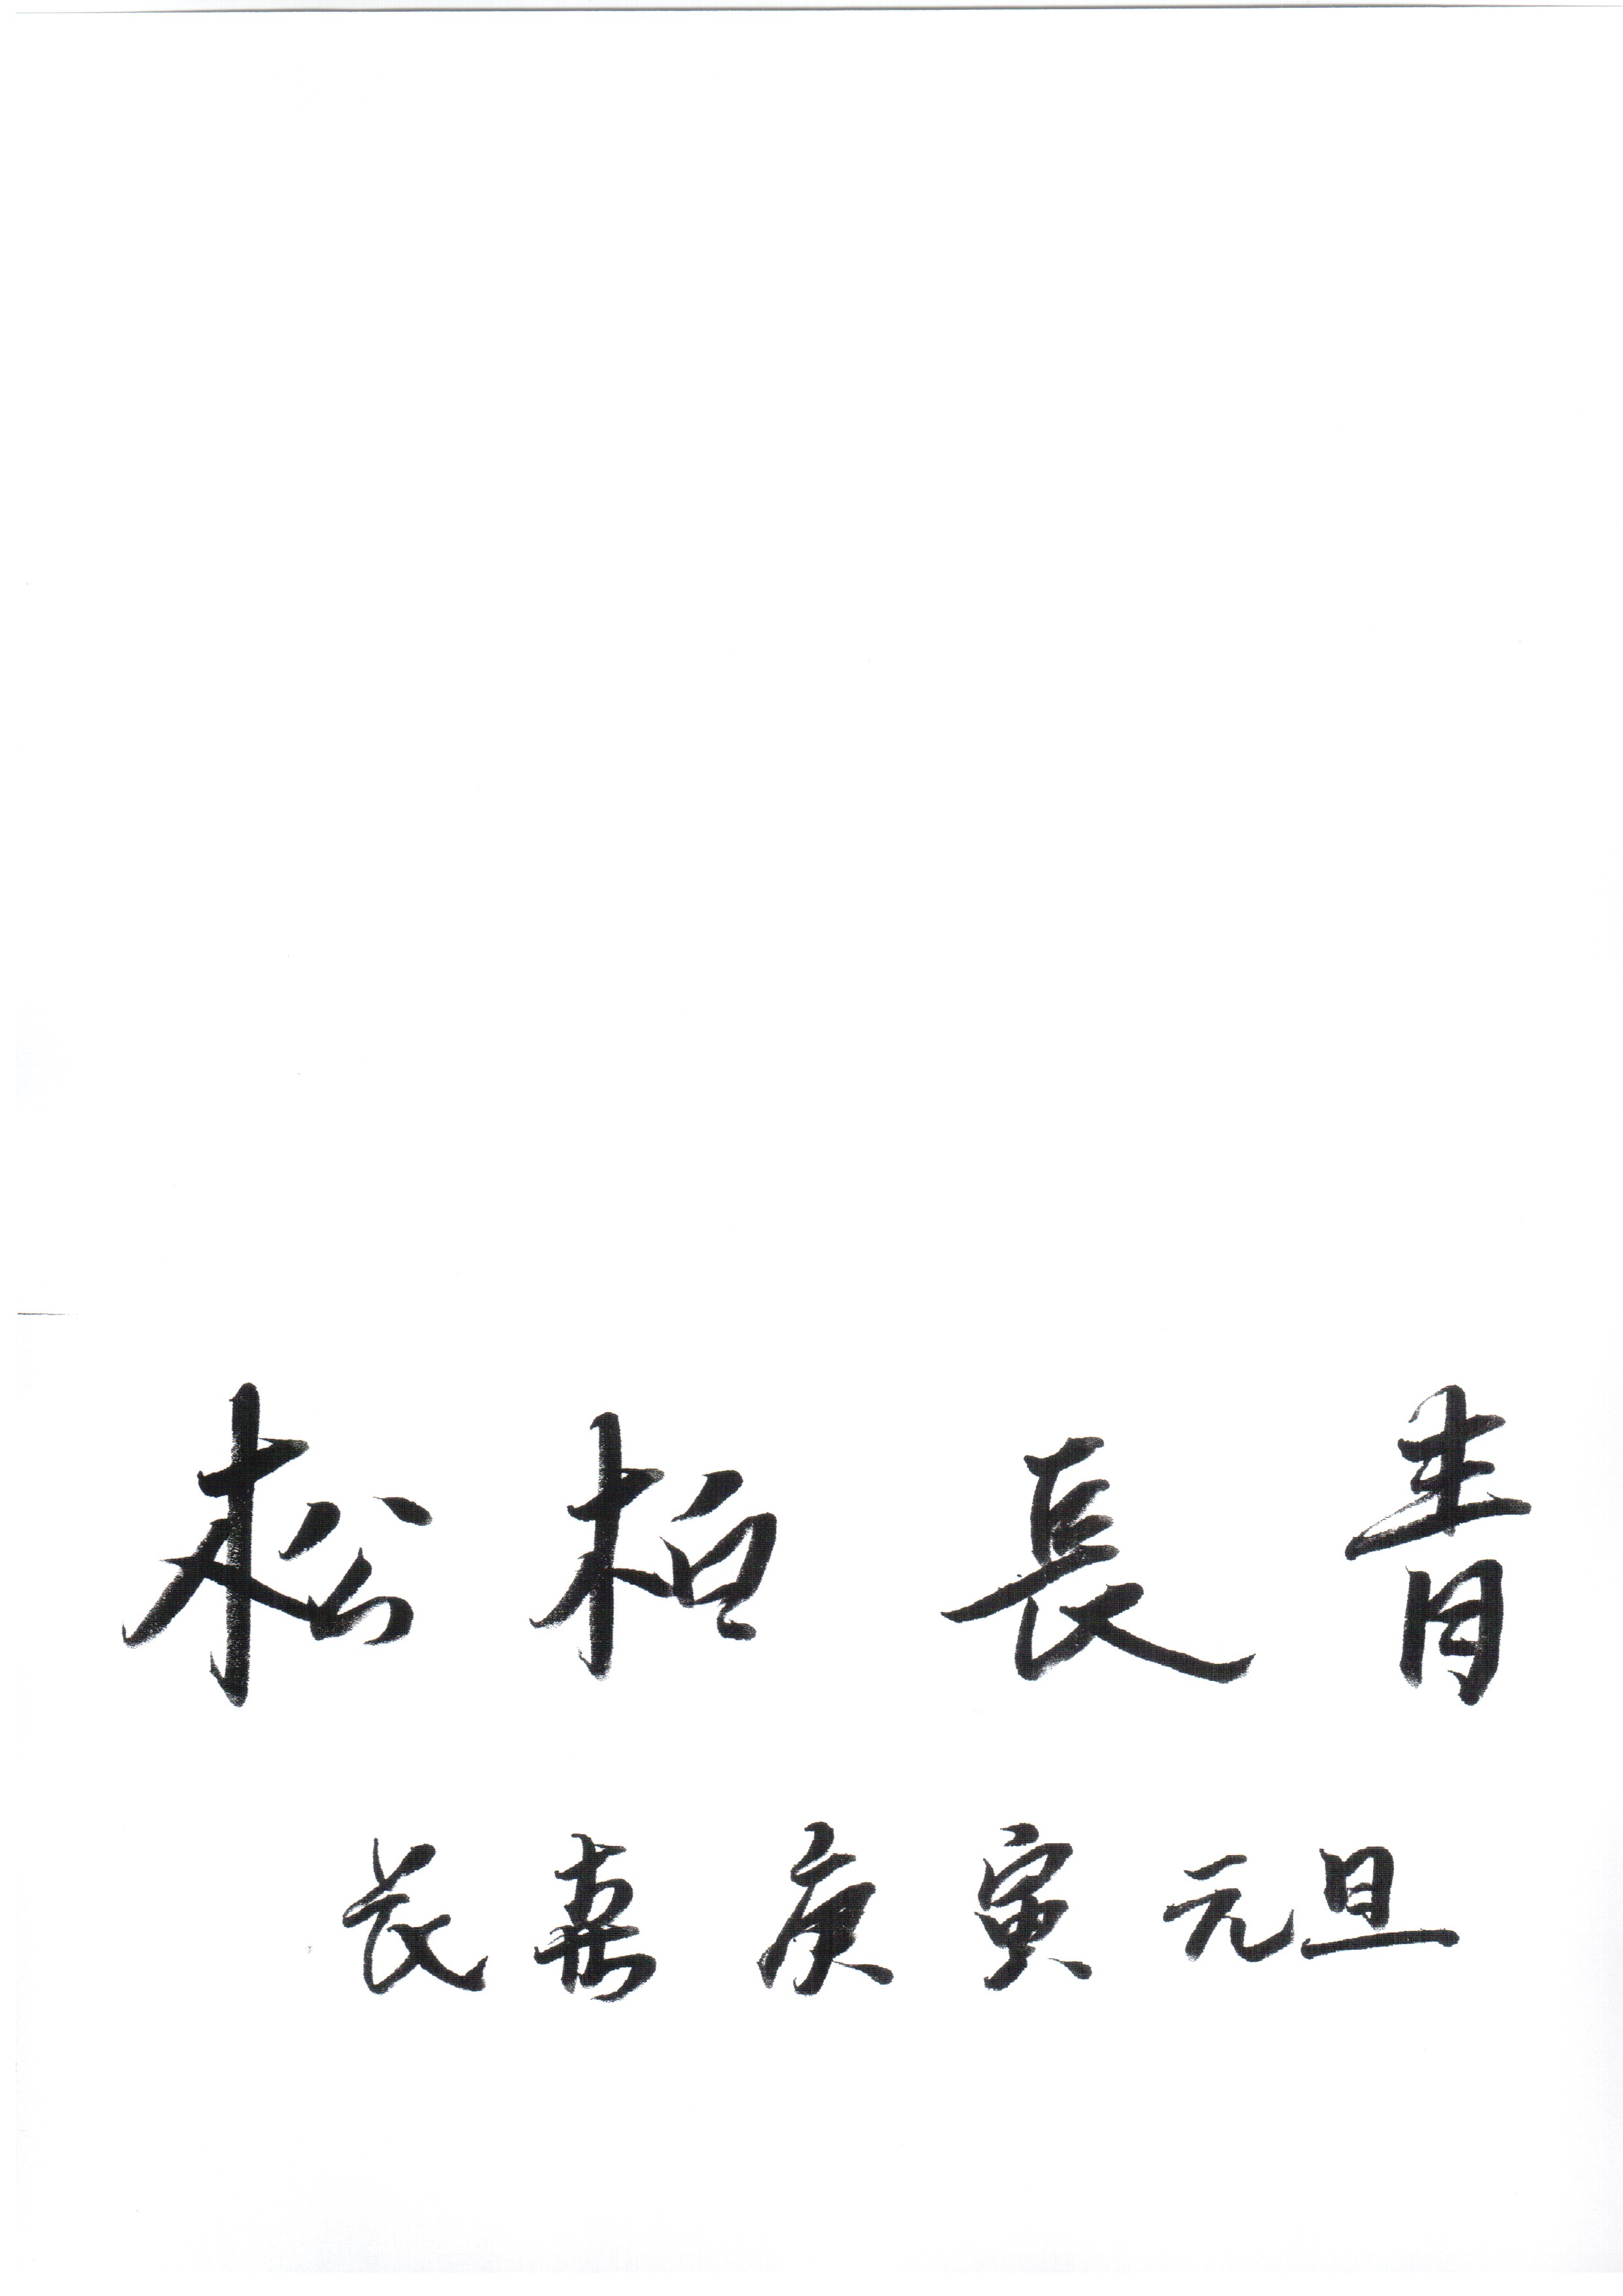 松柏長青
长嘉庚寅元旦